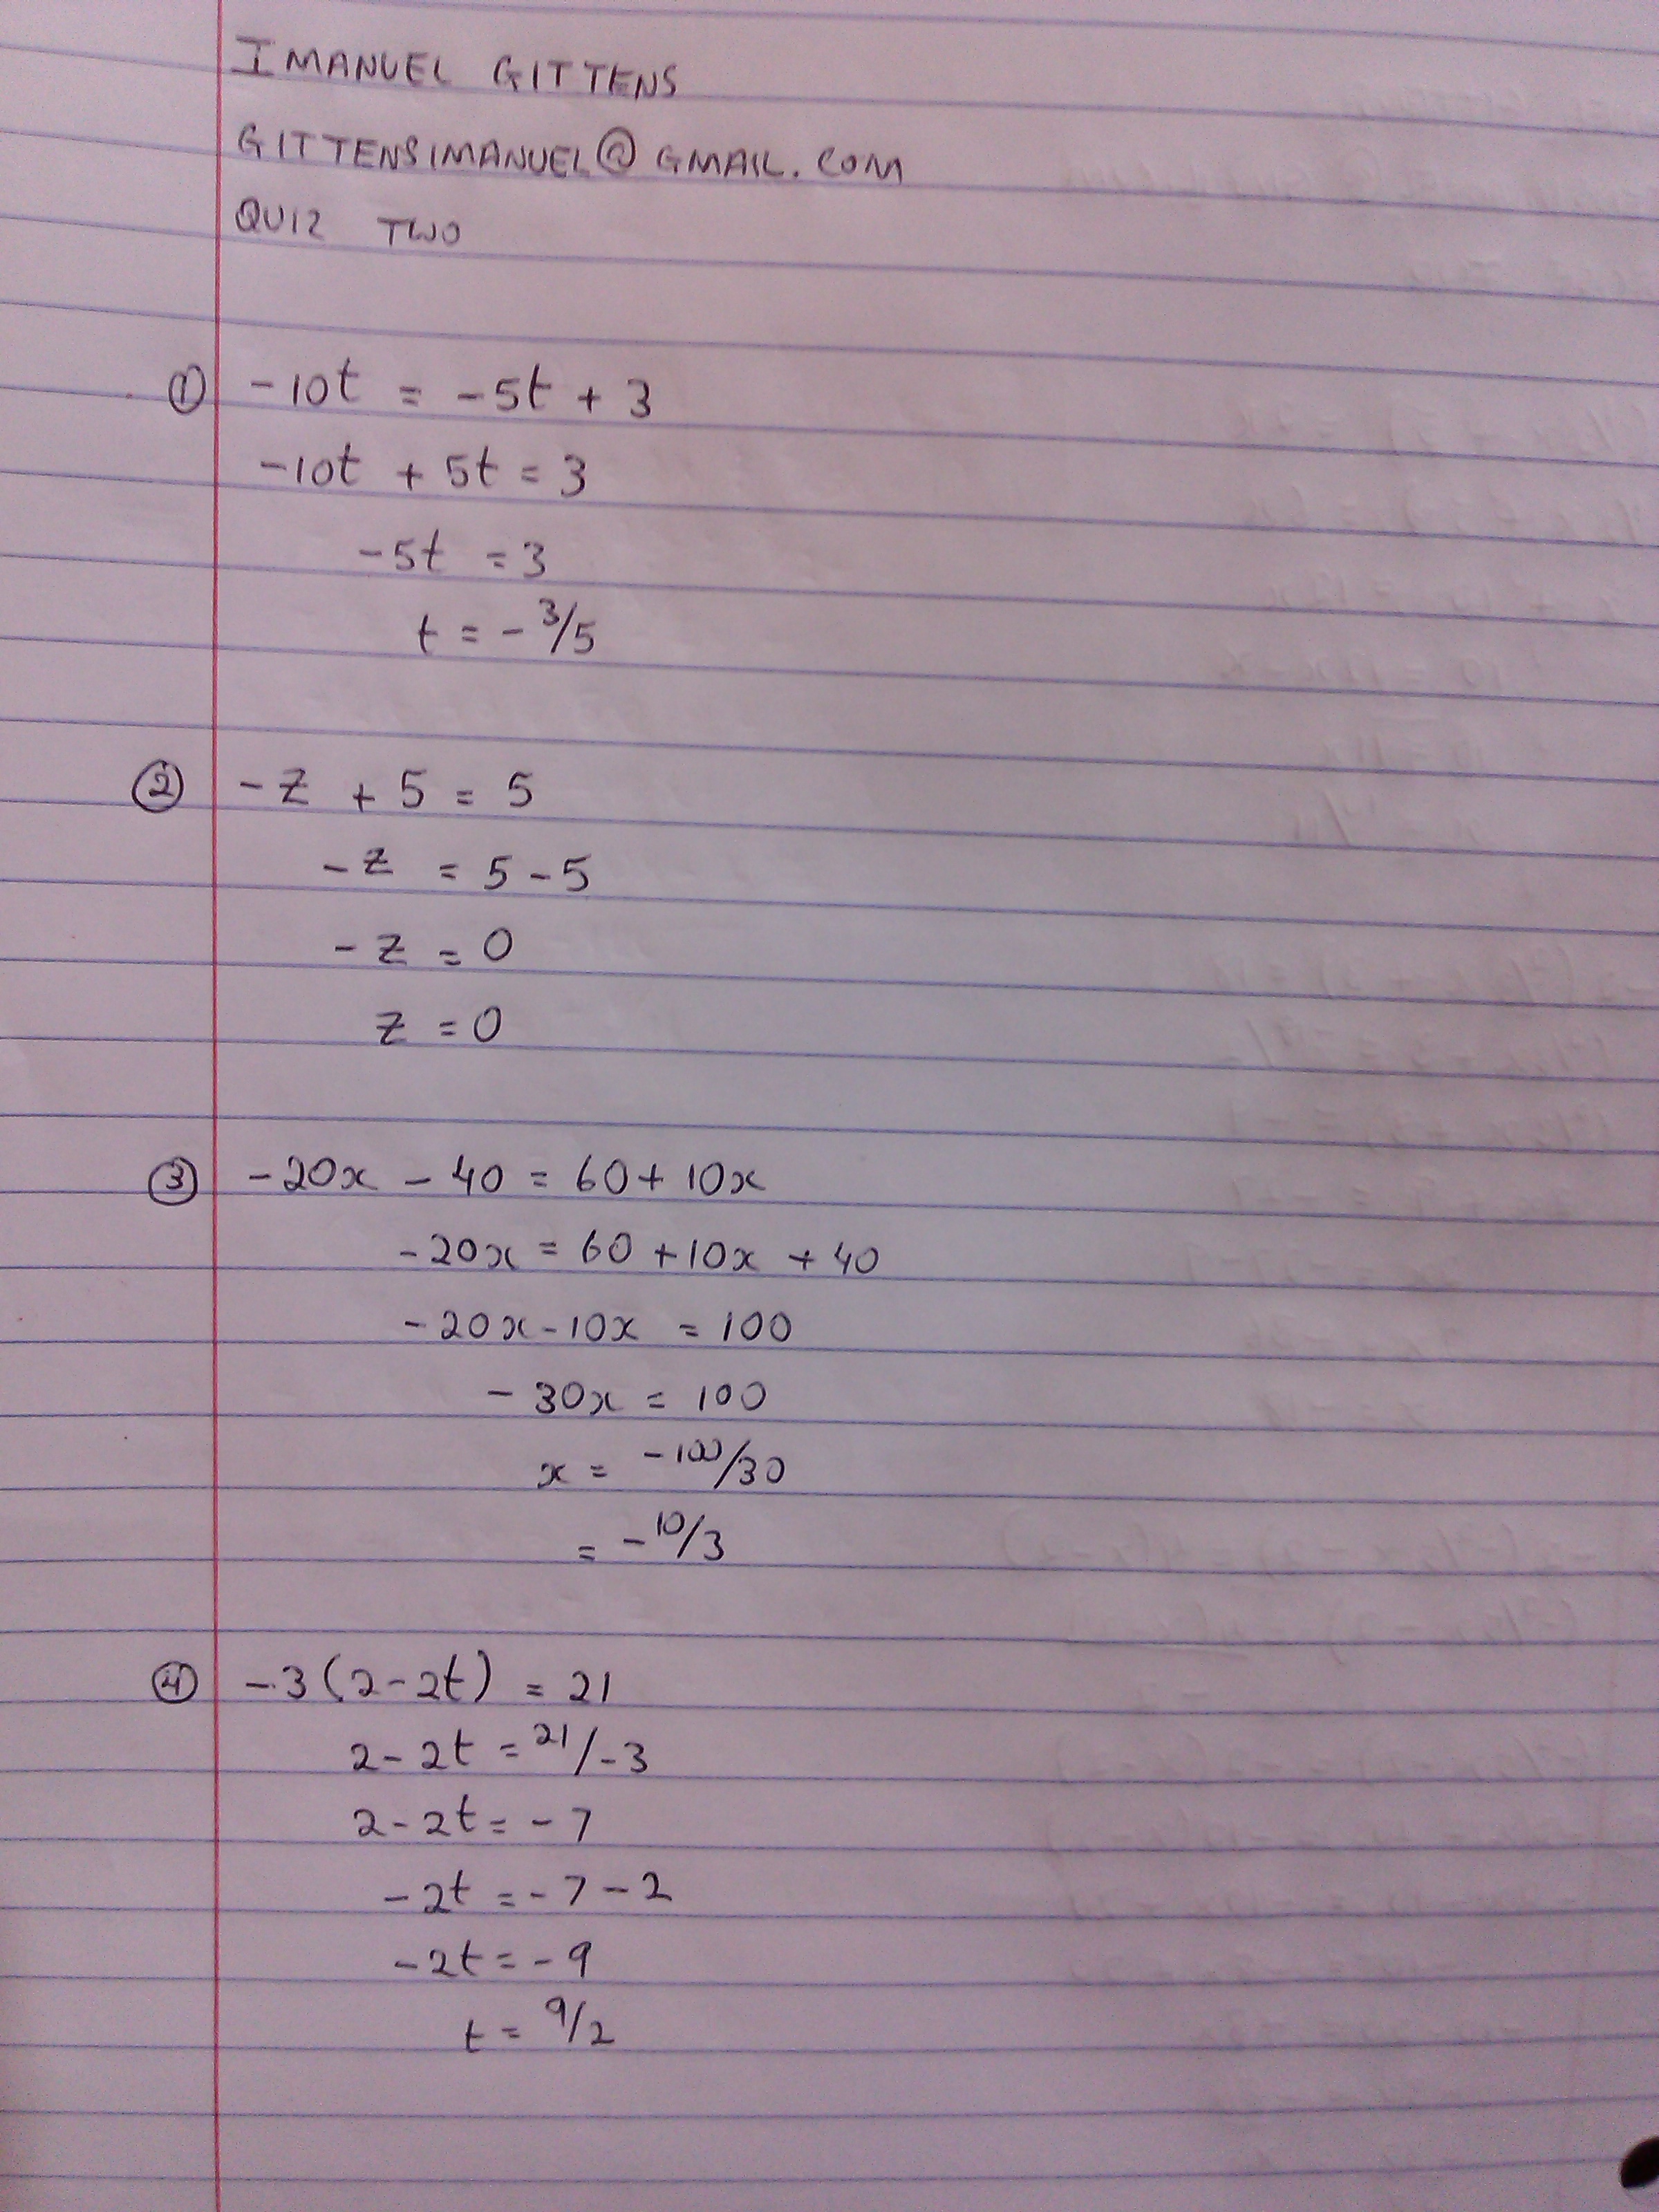 IMANUEL GITTENS
GITTENSIMANUEL@GMAIL.COM
QUIZ TWO
① -10t = -5t + 3
-10t + 5t = 3
-5t = 3
t = -3/5
② -z + 5 = 5
-z = 5 - 5
-z = 0
z = 0
③ -20x - 40 = 60 + 10x
-20x = 60 + 10x + 40
-20x - 10x = 100
-30x = 100
x = -100/30
= -10/3
④ -3(2 - 2t) = 21
2 - 2t = 21/-3
2 - 2t = -7
-2t = -7 - 2
-2t = -9
t = 9/2